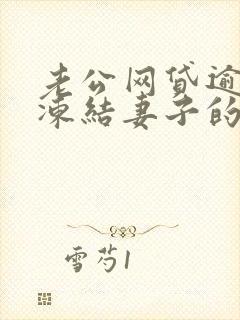 老公网贷逾
冻结妻子的
雪芍1